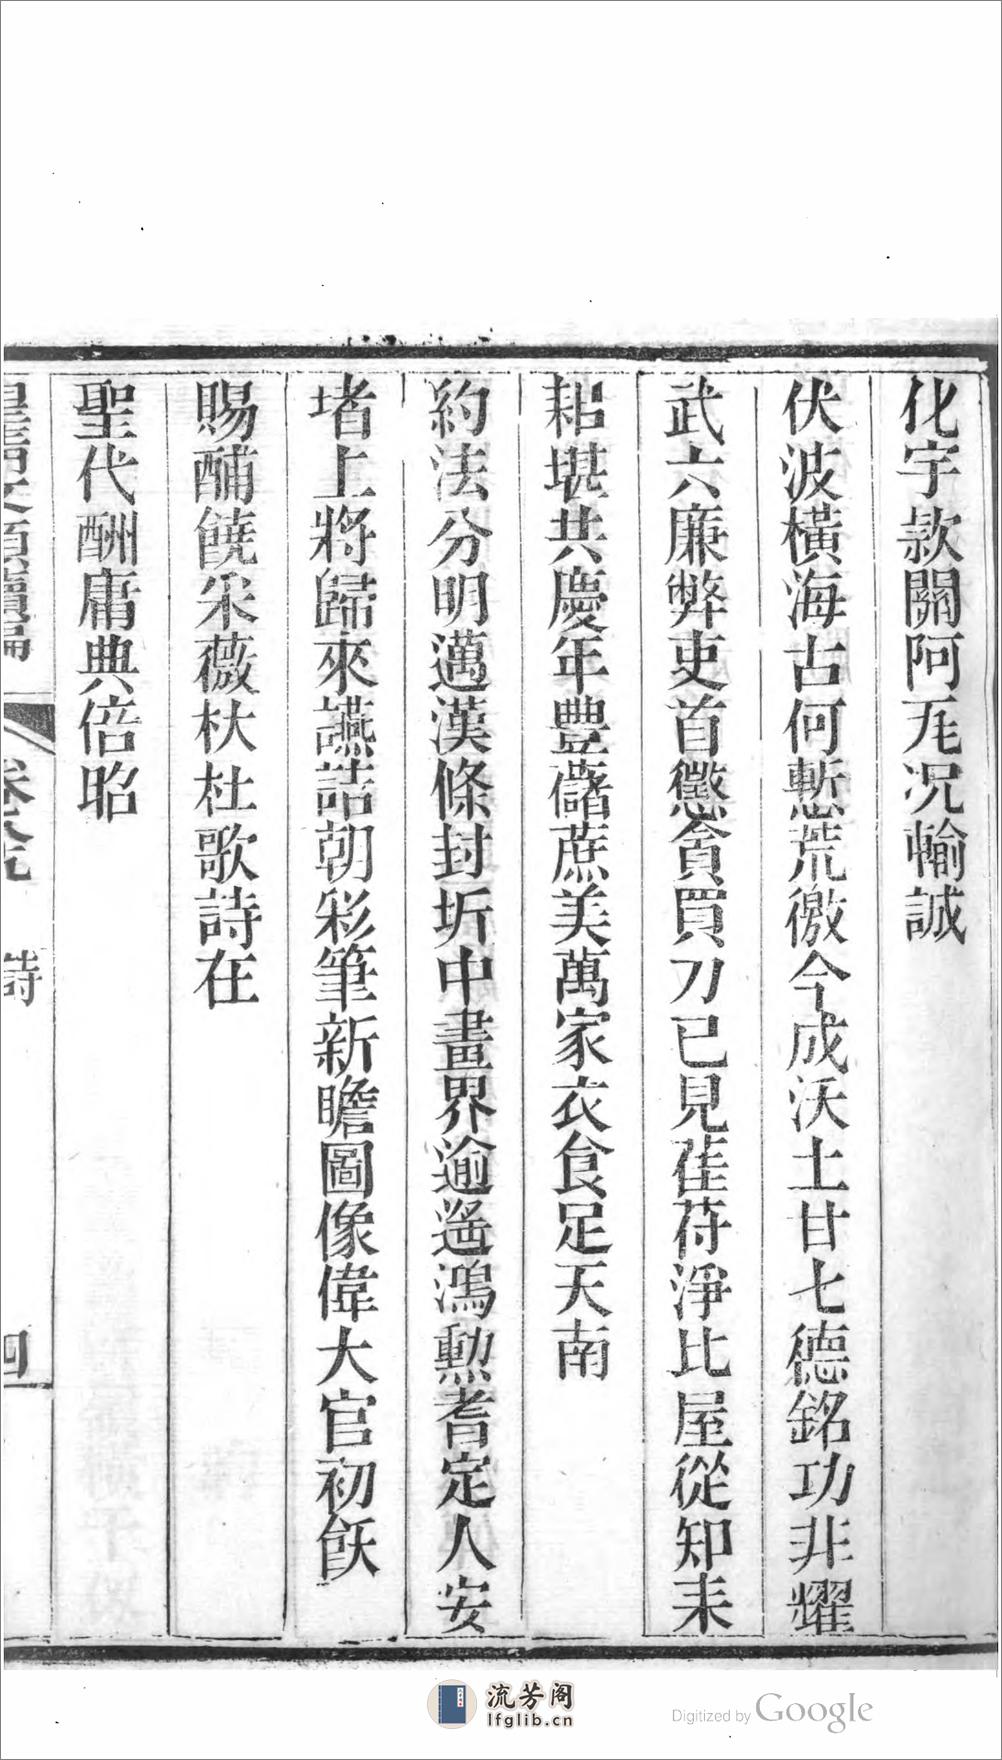 化宇款關阿瓦况輸誠
伏波橫海古何慙荒徼今成沃土甘七德銘功非耀
武六廉弊吏首懲貪買刀已見萑苻淨比屋從知耒
耜堪共慶年豐藷蔗美萬家衣食足天南
約法分明邁漢條封圻中畫界逾遥鴻勲耆定人安
堵上將歸來讌詰朝彩筆新瞻圖像偉大官初飫
賜酺饒采薇杕杜歌詩在
聖代酬庸典倍昭
皇清文穎續編 卷八九 詩 四
流芳阁
lfglib.cn
Digitized by Google